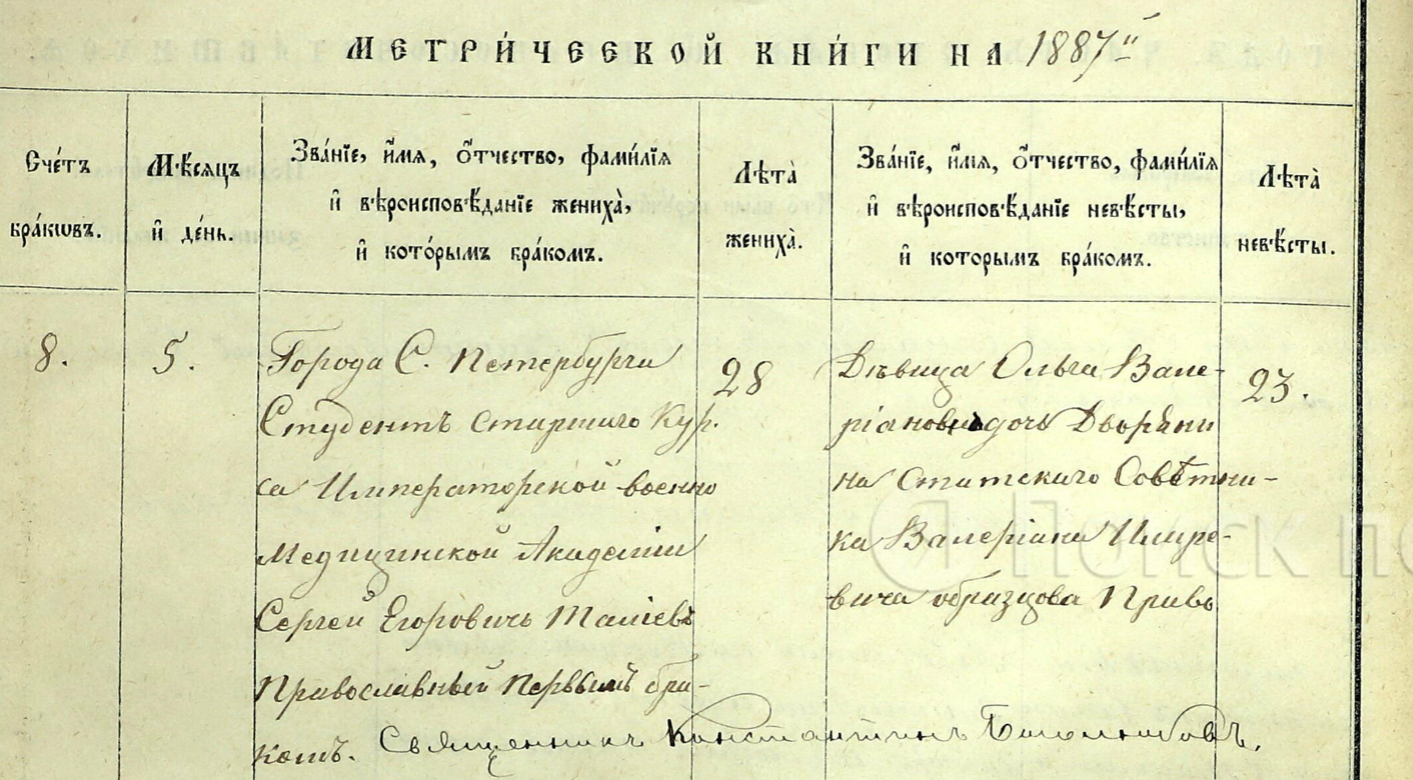 МЕТРИ́ЧЕСКОЙ КНИ́ГИ НА 1887й
Сче́тъ
бра́кѡвъ.
Мѣ́сяцъ
и҆ де́нь.
Зва́нїе, и҆́мя, ѻ҆́тчество, фами́лїя
и҆ вѣроисповѣ́данїе жениха̀,
и҆ кото́рымъ бра́комъ.
Лѣта̀
жениха̀.
Зва́нїе, и҆́мя, ѻ҆́тчество, фами́лїя
и҆ вѣроисповѣ́данїе невѣ́сты,
и҆ кото́рымъ бра́комъ.
Лѣта̀
невѣ́сты.
8.
5.
Города С. Петербурга
Студентъ старшаго Кур.
са Императорской военно
Медицинской Академіи
Сергей Егоровичь Таліевъ
Православный первымъ бра-
комъ.
28
Дѣвица Ольга Вале-
ріановна дочь Дворяни
на Статскаго Совѣтни-
ка Валеріана Имре-
вича образцова Право
23.
Священникъ Константинъ
Поиск по